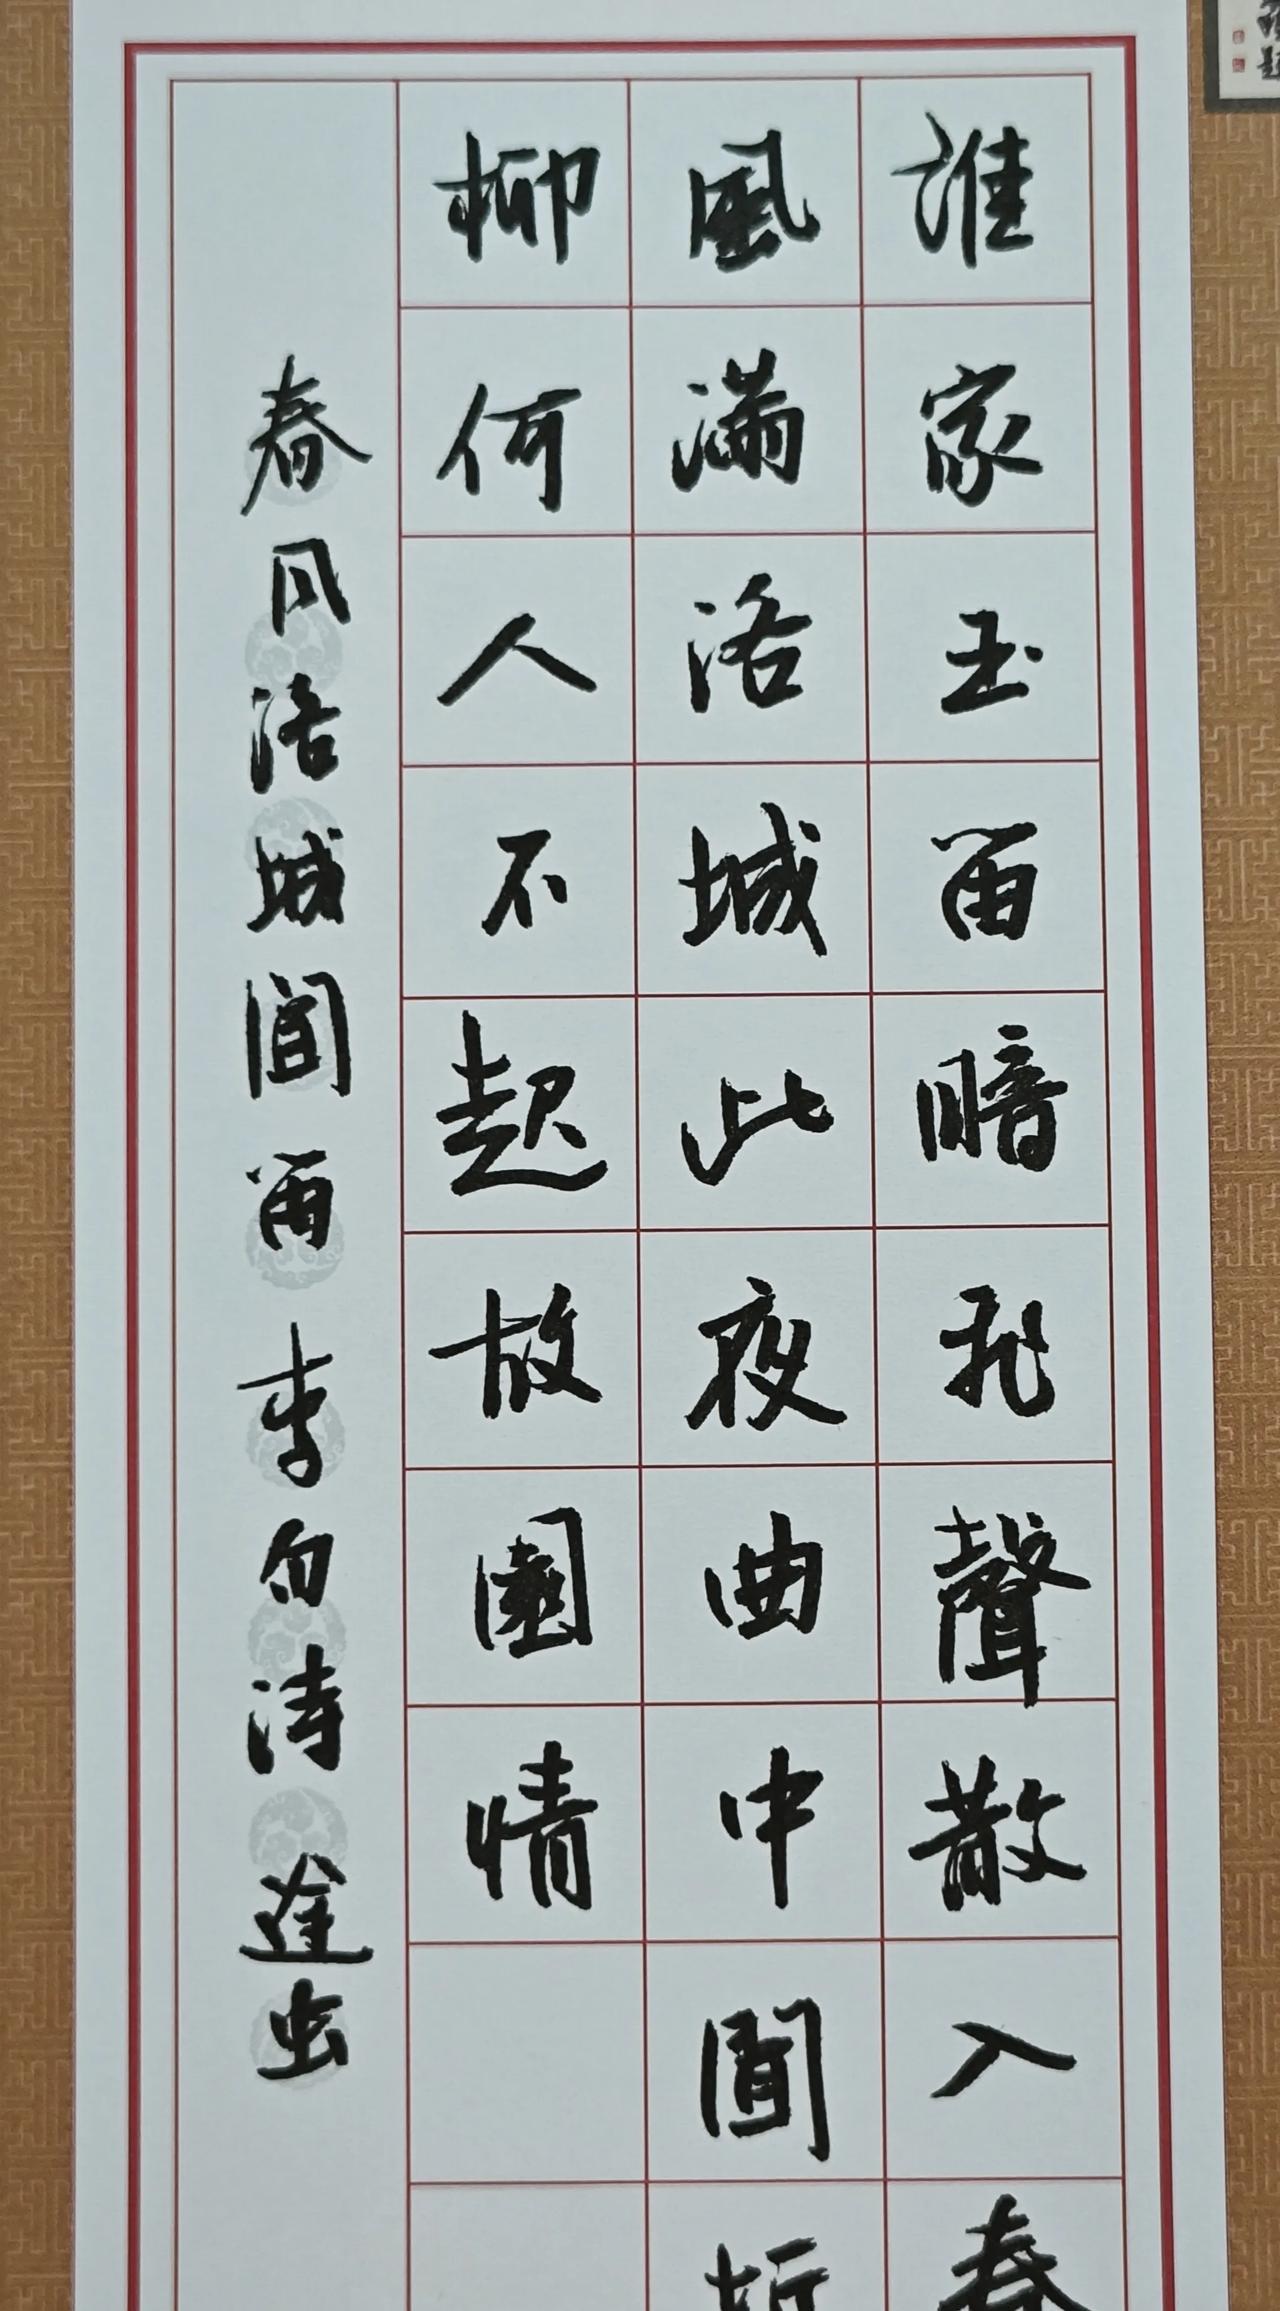 誰家玉笛暗飛聲散入春
風滿洛城此夜曲中聞折
柳何人不起故園情
春风洛城聞笛 李白诗